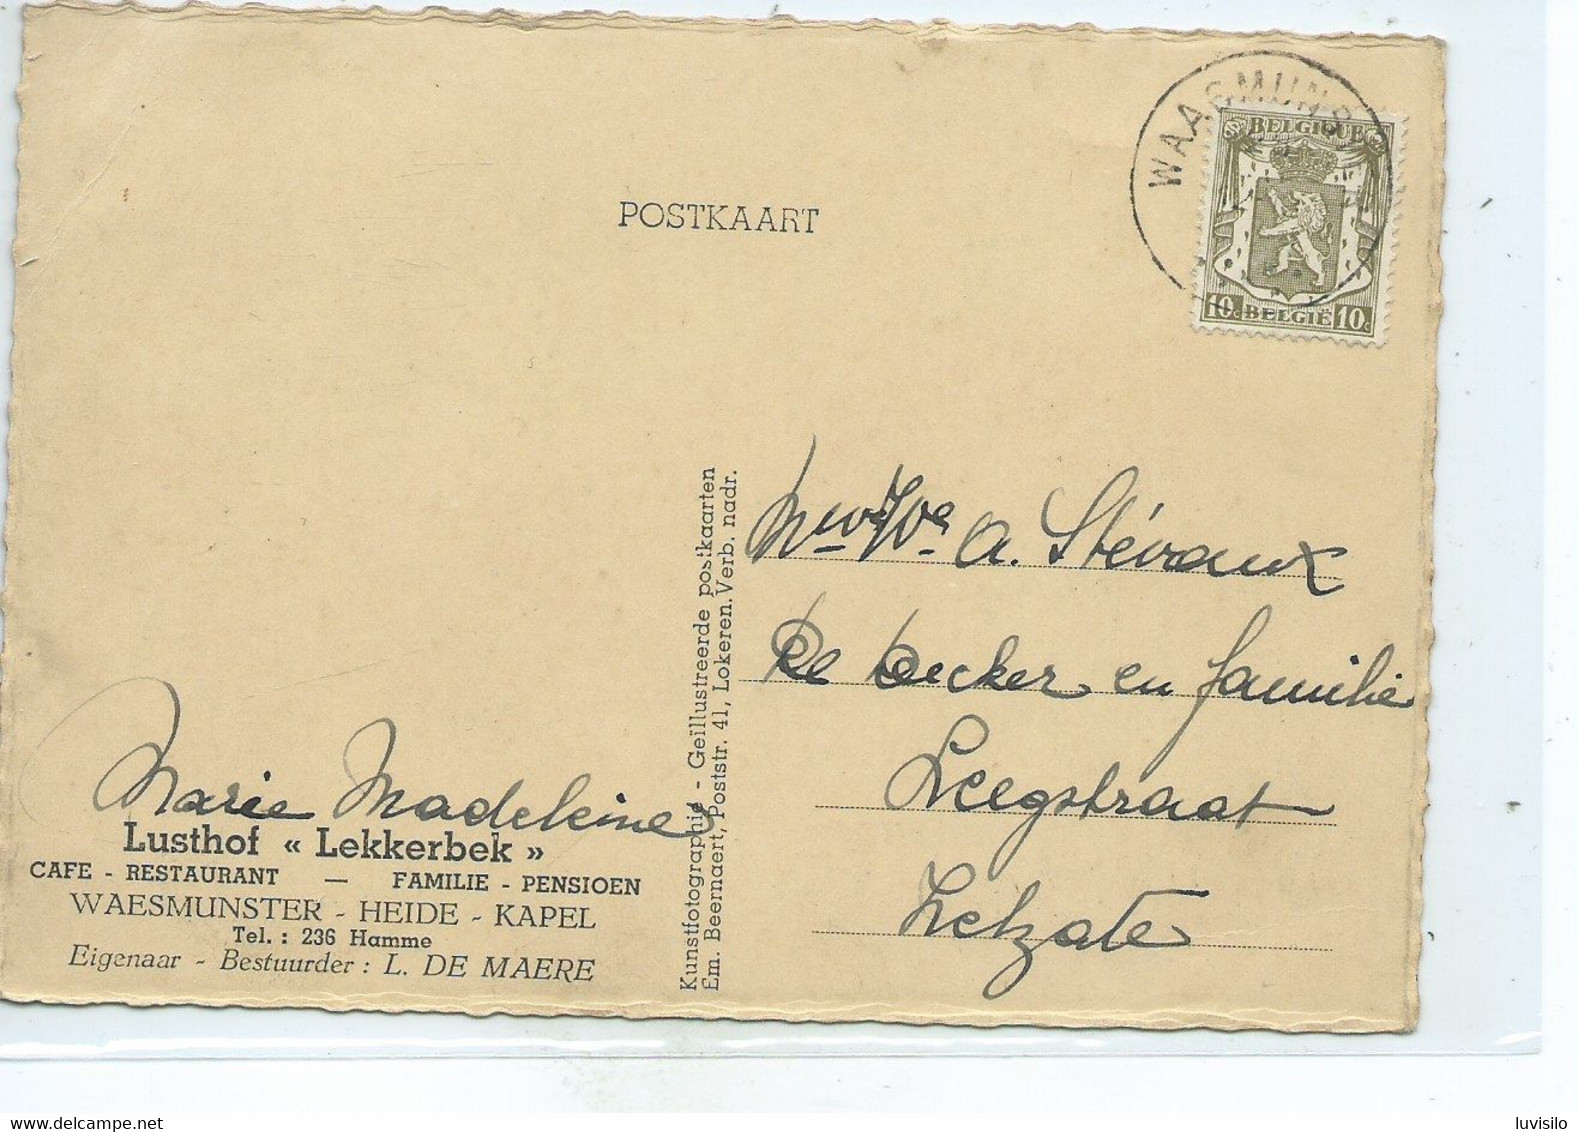 POSTKAART
WAASMUNS
BELGIQUE
10c BELGIË 10c
Mw We A. Stévaux
De Decker en familie
Leegstraat
Zelzate
Kunstfotographie - Geïllustreerde postkaarten
Em. Beernaert, Poststr. 41, Lokeren. Verb. nadr.
Marie Madeleine
Lusthof « Lekkerbek »
CAFE - RESTAURANT — FAMILIE - PENSIOEN
WAESMUNSTER - HEIDE - KAPEL
Tel. : 236 Hamme
Eigenaar - Bestuurder : L. DE MAERE
delcampe.net
luvisilo